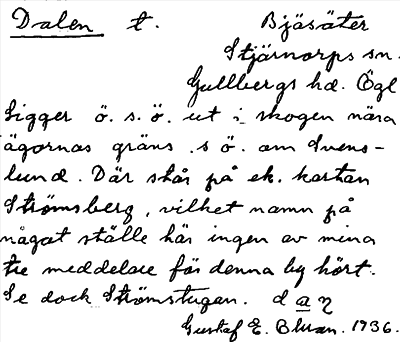 Dalen t. Bjäsäter
Stjärnorps sn.
Gullbergs hd. Ögl
Ligger ö. s. ö. ut i skogen nära
ägornas gräns s ö. om Svens-
lund. Där står på ek. kartan
Strömsberg, vilket namn på
något ställe här ingen av mina
tre meddelare för denna by hört.
Se dock Strömstugan. d a n
Gustaf E. Blman. 1936.